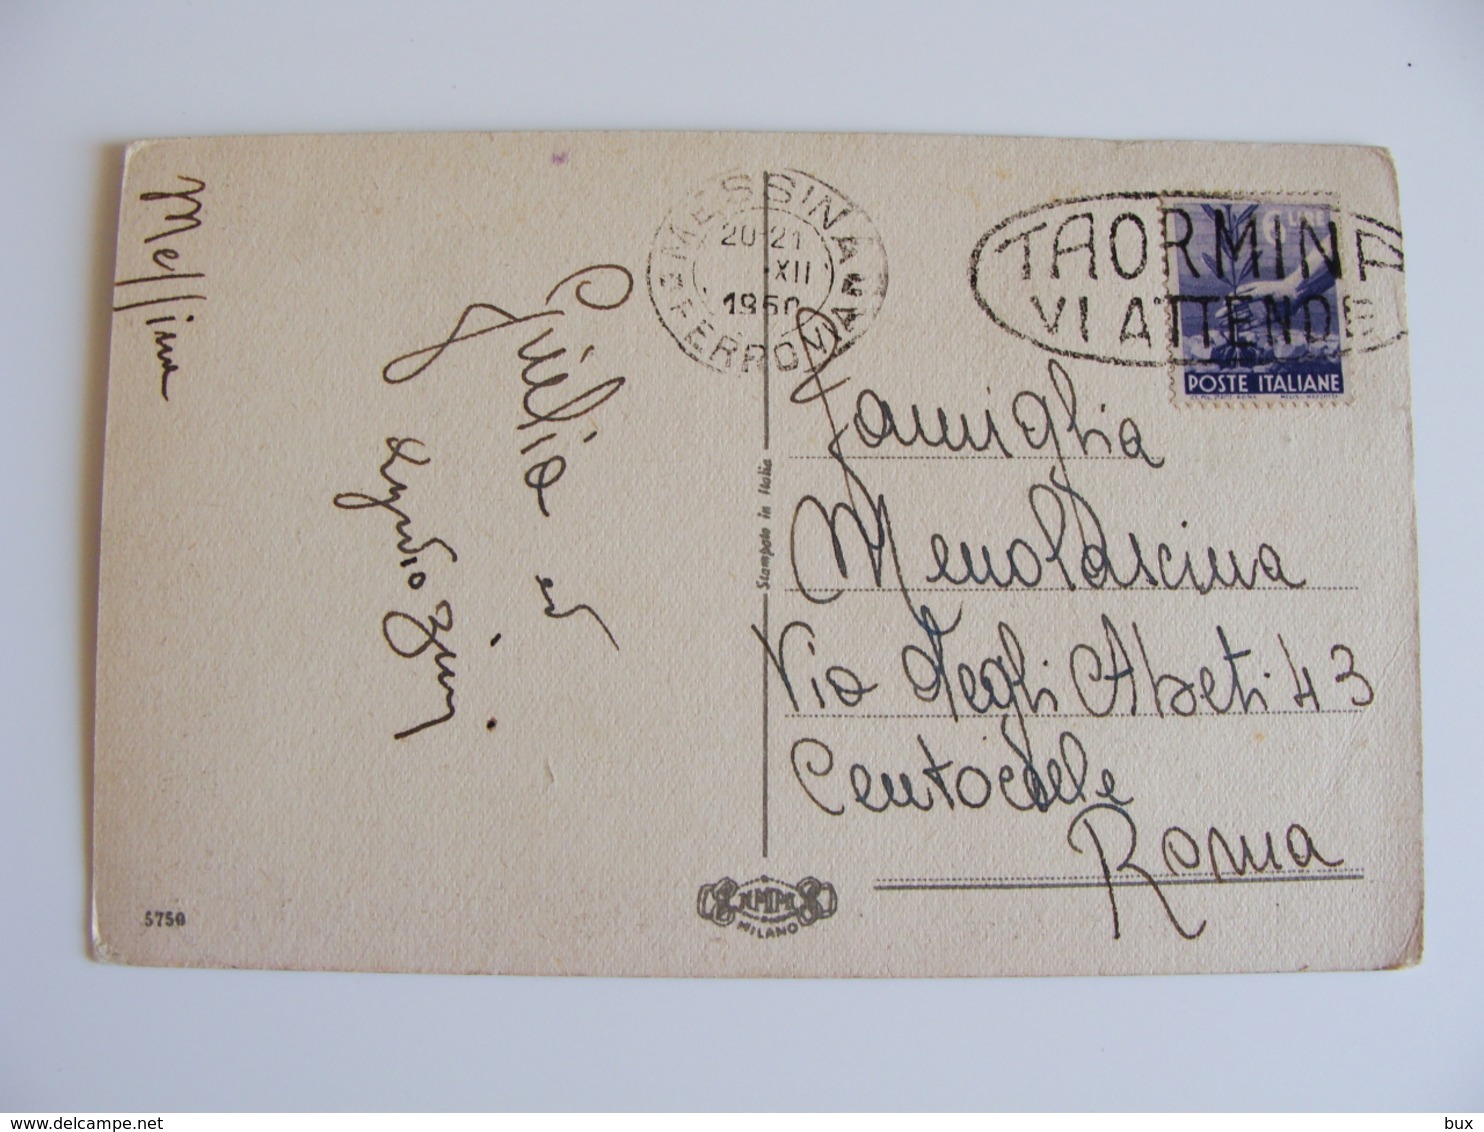 Messina
Giulia ed
Zini
5750
MESSINA
20-21
XII
1950
FERROVIA
TAORMINA
VI ATTENDE
6 LIRE
POSTE ITALIANE
Stampato in Italia
Famiglia
Menolascina
Via degli Abeti 43
Centocelle
Roma
NMM
MILANO
bux
delcampe.net